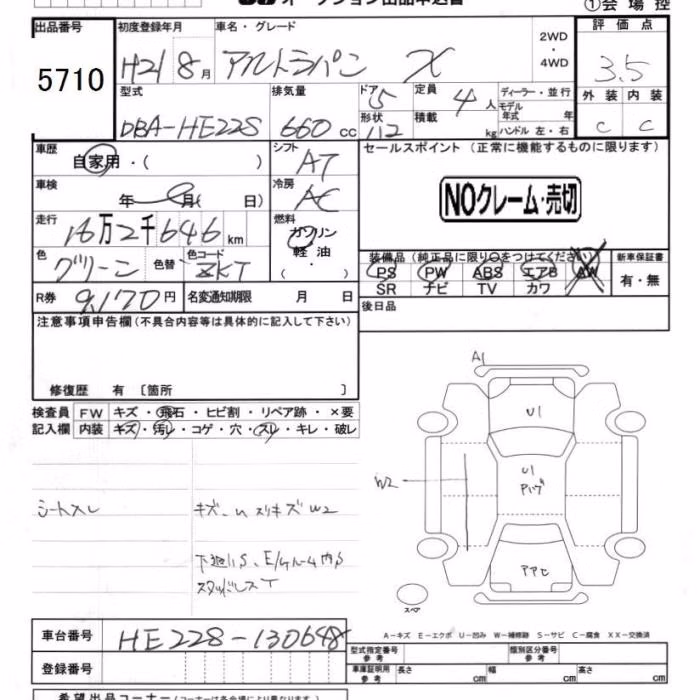 オークション出品申込書
①会場控
出品番号 初度登録年月 車名・グレード 評価点
5710 H21 8月 アルトラパン X 2WD・4WD 3.5
型式 排気量 ドア 5 定員 4人 ディーラー・並行 外装 内装
DBA-HE22S 660cc 形状 112 積載 kg モデル年式 年 C C
ハンドル 左・右
車歴 自家用・( ) シフト AT セールスポイント (正常に機能するものに限ります)
車検 年 月( 日) 冷房 AC NOクレーム・売切
走行 16万2千646km 燃料 ガソリン
軽油・( )
色 グリーン 色替 色コード ZKT
装備品(純正品に限り○をつけてください) 新車保証書
PS PW ABS エアB AW 有・無
SR ナビ TV カワ
R券 9,170円 名変通知期限 月 日 後日品
注意事項申告欄(不具合内容等は具体的に記入して下さい)
修復歴 有 〔箇所 〕
検査員 FW キズ・飛石・ヒビ割・リペア跡・×要
記入欄 内装 キズ・汚レ・コゲ・穴・スレ・キレ・破レ
A1
U1
W2
U1
シートスレ キズ・凹 スリキズ W2
スタッドレスT
スペア
A-キズ E-エクボ U-凹み W-補修跡 S-サビ C-腐食 XX-交換済
車台番号 HE22S-130648
型式指定番号 参考 類別区分番号 参考
登録番号 車庫証明用 参考 長さ cm 幅 cm 高さ cm
希望出品コーナー(コーナーは各会場により異なります)